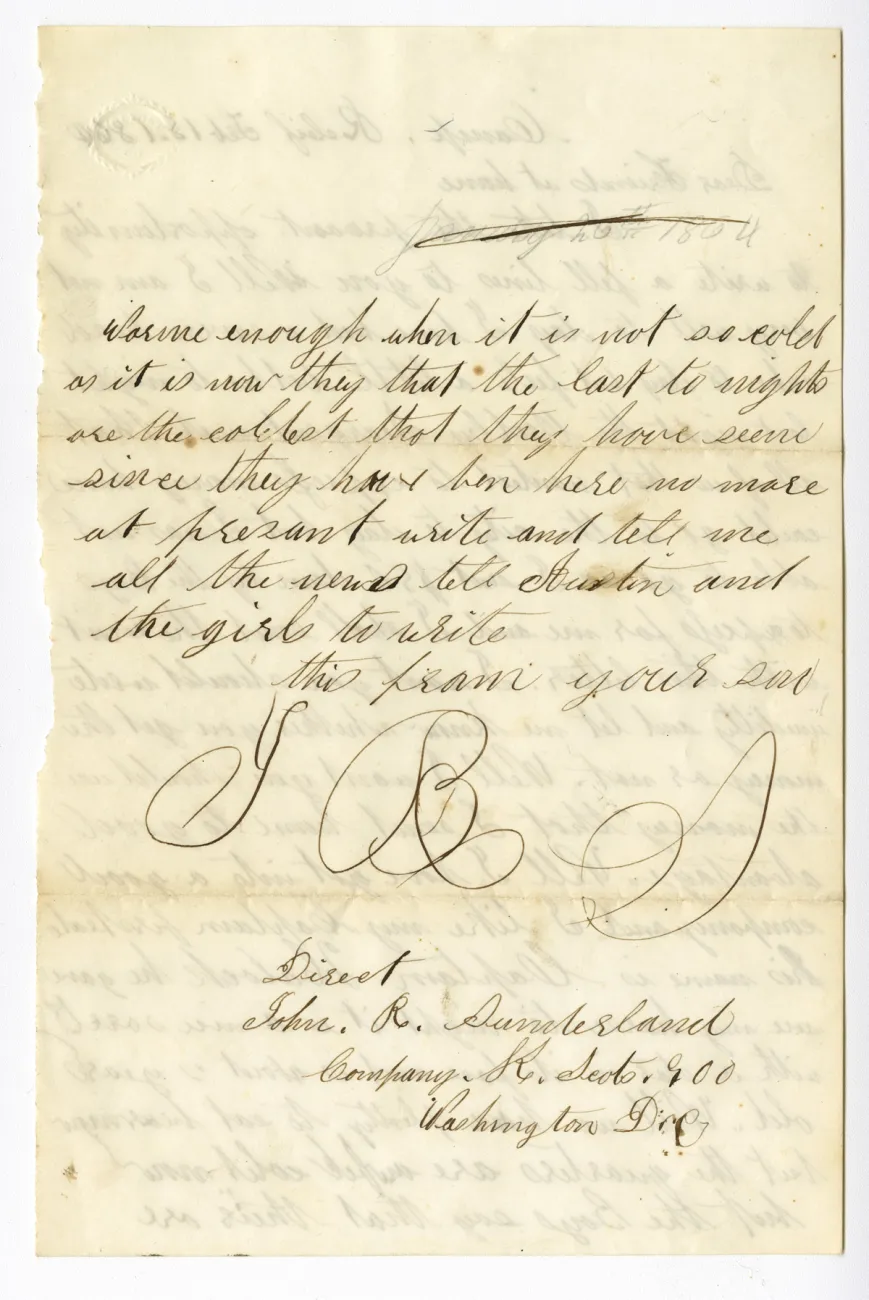 January 26th 1864
Warme enough when it is not so cold
as it is now they that the last to nights
are the coldest that they have seene
since they have ben here no more
at presant write and tell me
all the news tell Austin and
the girls to write
this fram your son
J B S
Direct
John. R. Sunderland
Company. K. Scots. 900
Washington D.C.